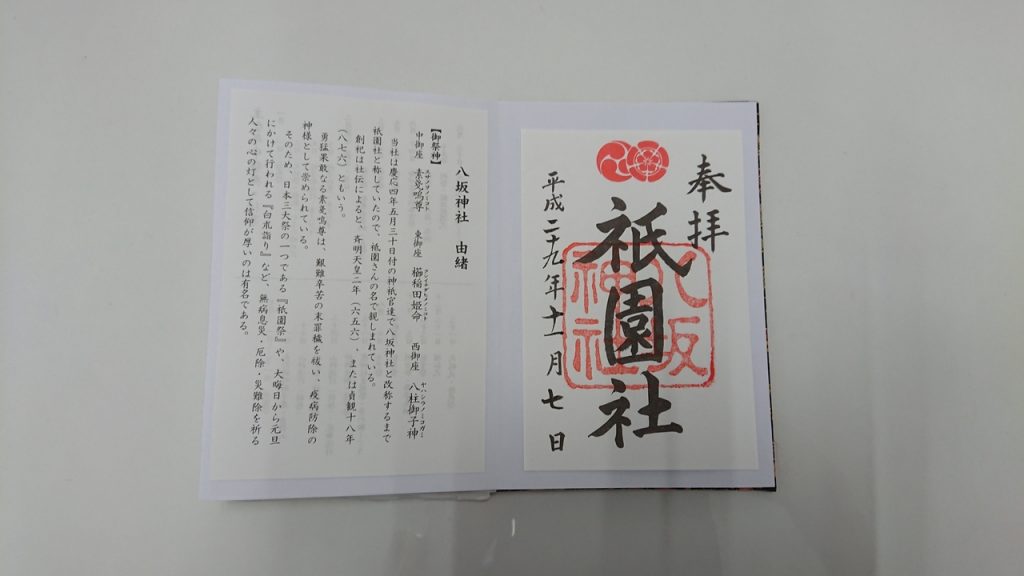 奉拝
八坂神社
祇園社
平成二十九年十一月七日
八坂神社 由緒
【御祭神】
中御座 素戔嗚尊 スサノヲノミコト 東御座 櫛稲田姫命 クシイナダヒメノミコト 西御座 八柱御子神 ヤハシラノミコガミ
当社は慶応四年五月三十日付の神祇官達で八坂神社と改称するまで
祇園社と称していたので、祇園さんの名で親しまれている。
創祀は社伝によると、斉明天皇二年(六五六)、または貞観十八年
(八七六)ともいう。
勇猛果敢なる素戔嗚尊は、艱難辛苦の末罪穢を祓い、疫病防除の
神様として崇められている。
そのため、日本三大祭の一つである『祇園祭』や、大晦日から元旦
にかけて行われる『白朮詣り』など、無病息災・厄除・災難除を祈る
人々の心の灯として信仰が厚いのは有名である。